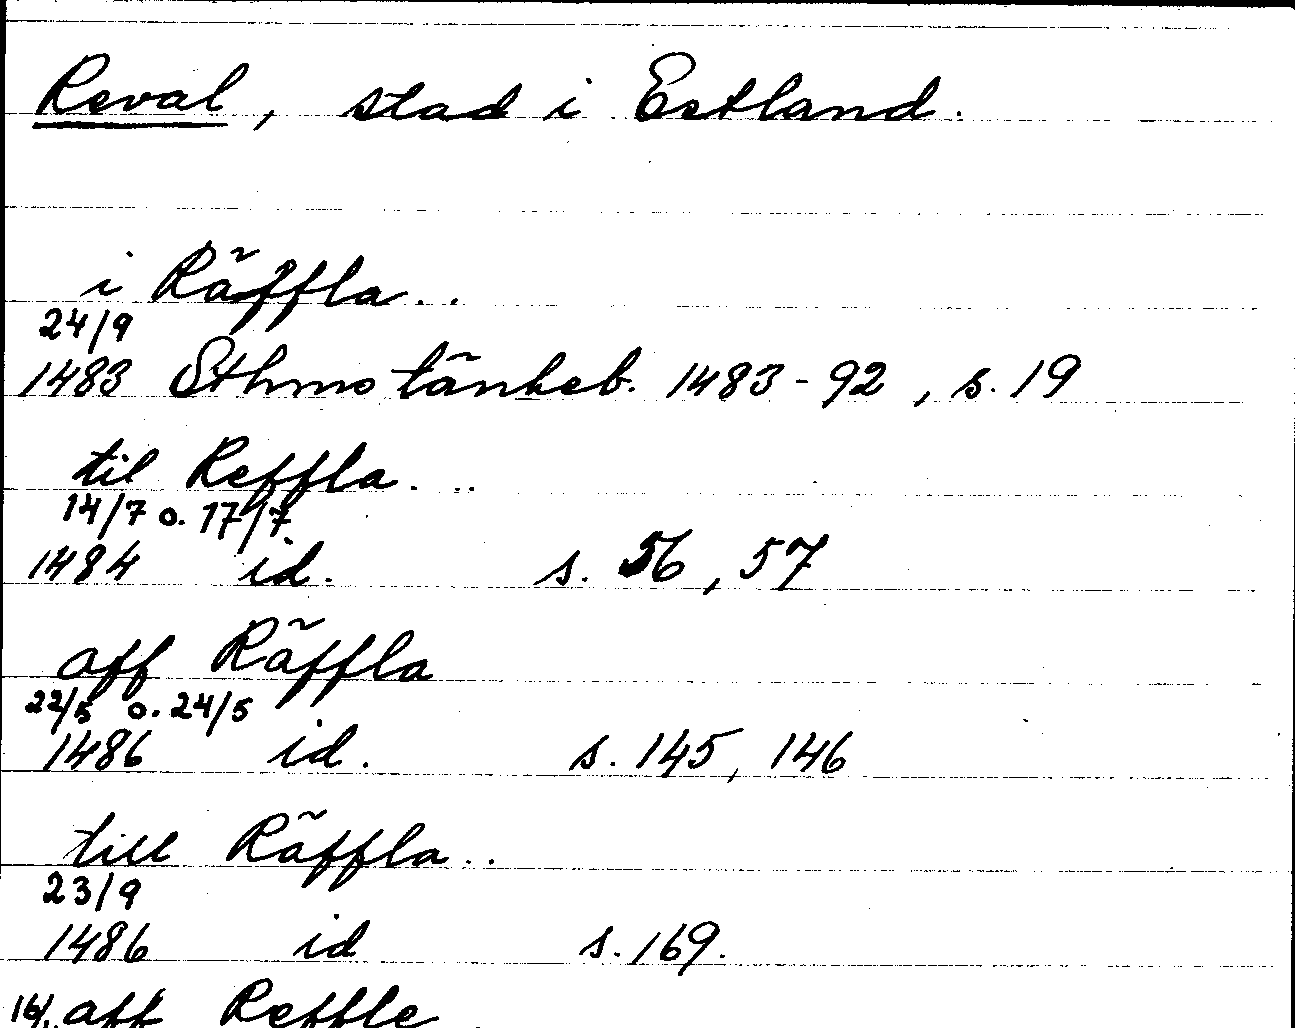 Reval, stad i Estland.
i Räffla..
24/9
1483 Sthms tänkeb. 1483-92, s. 19
til Reffla...
14/7 o. 17/7.
1484 id. s. 56, 57
aff Räffla
22/5 o. 24/5
1486 id. s. 145, 146
till Räffla..
23/9
1486 id s. 169.
aff Reffle